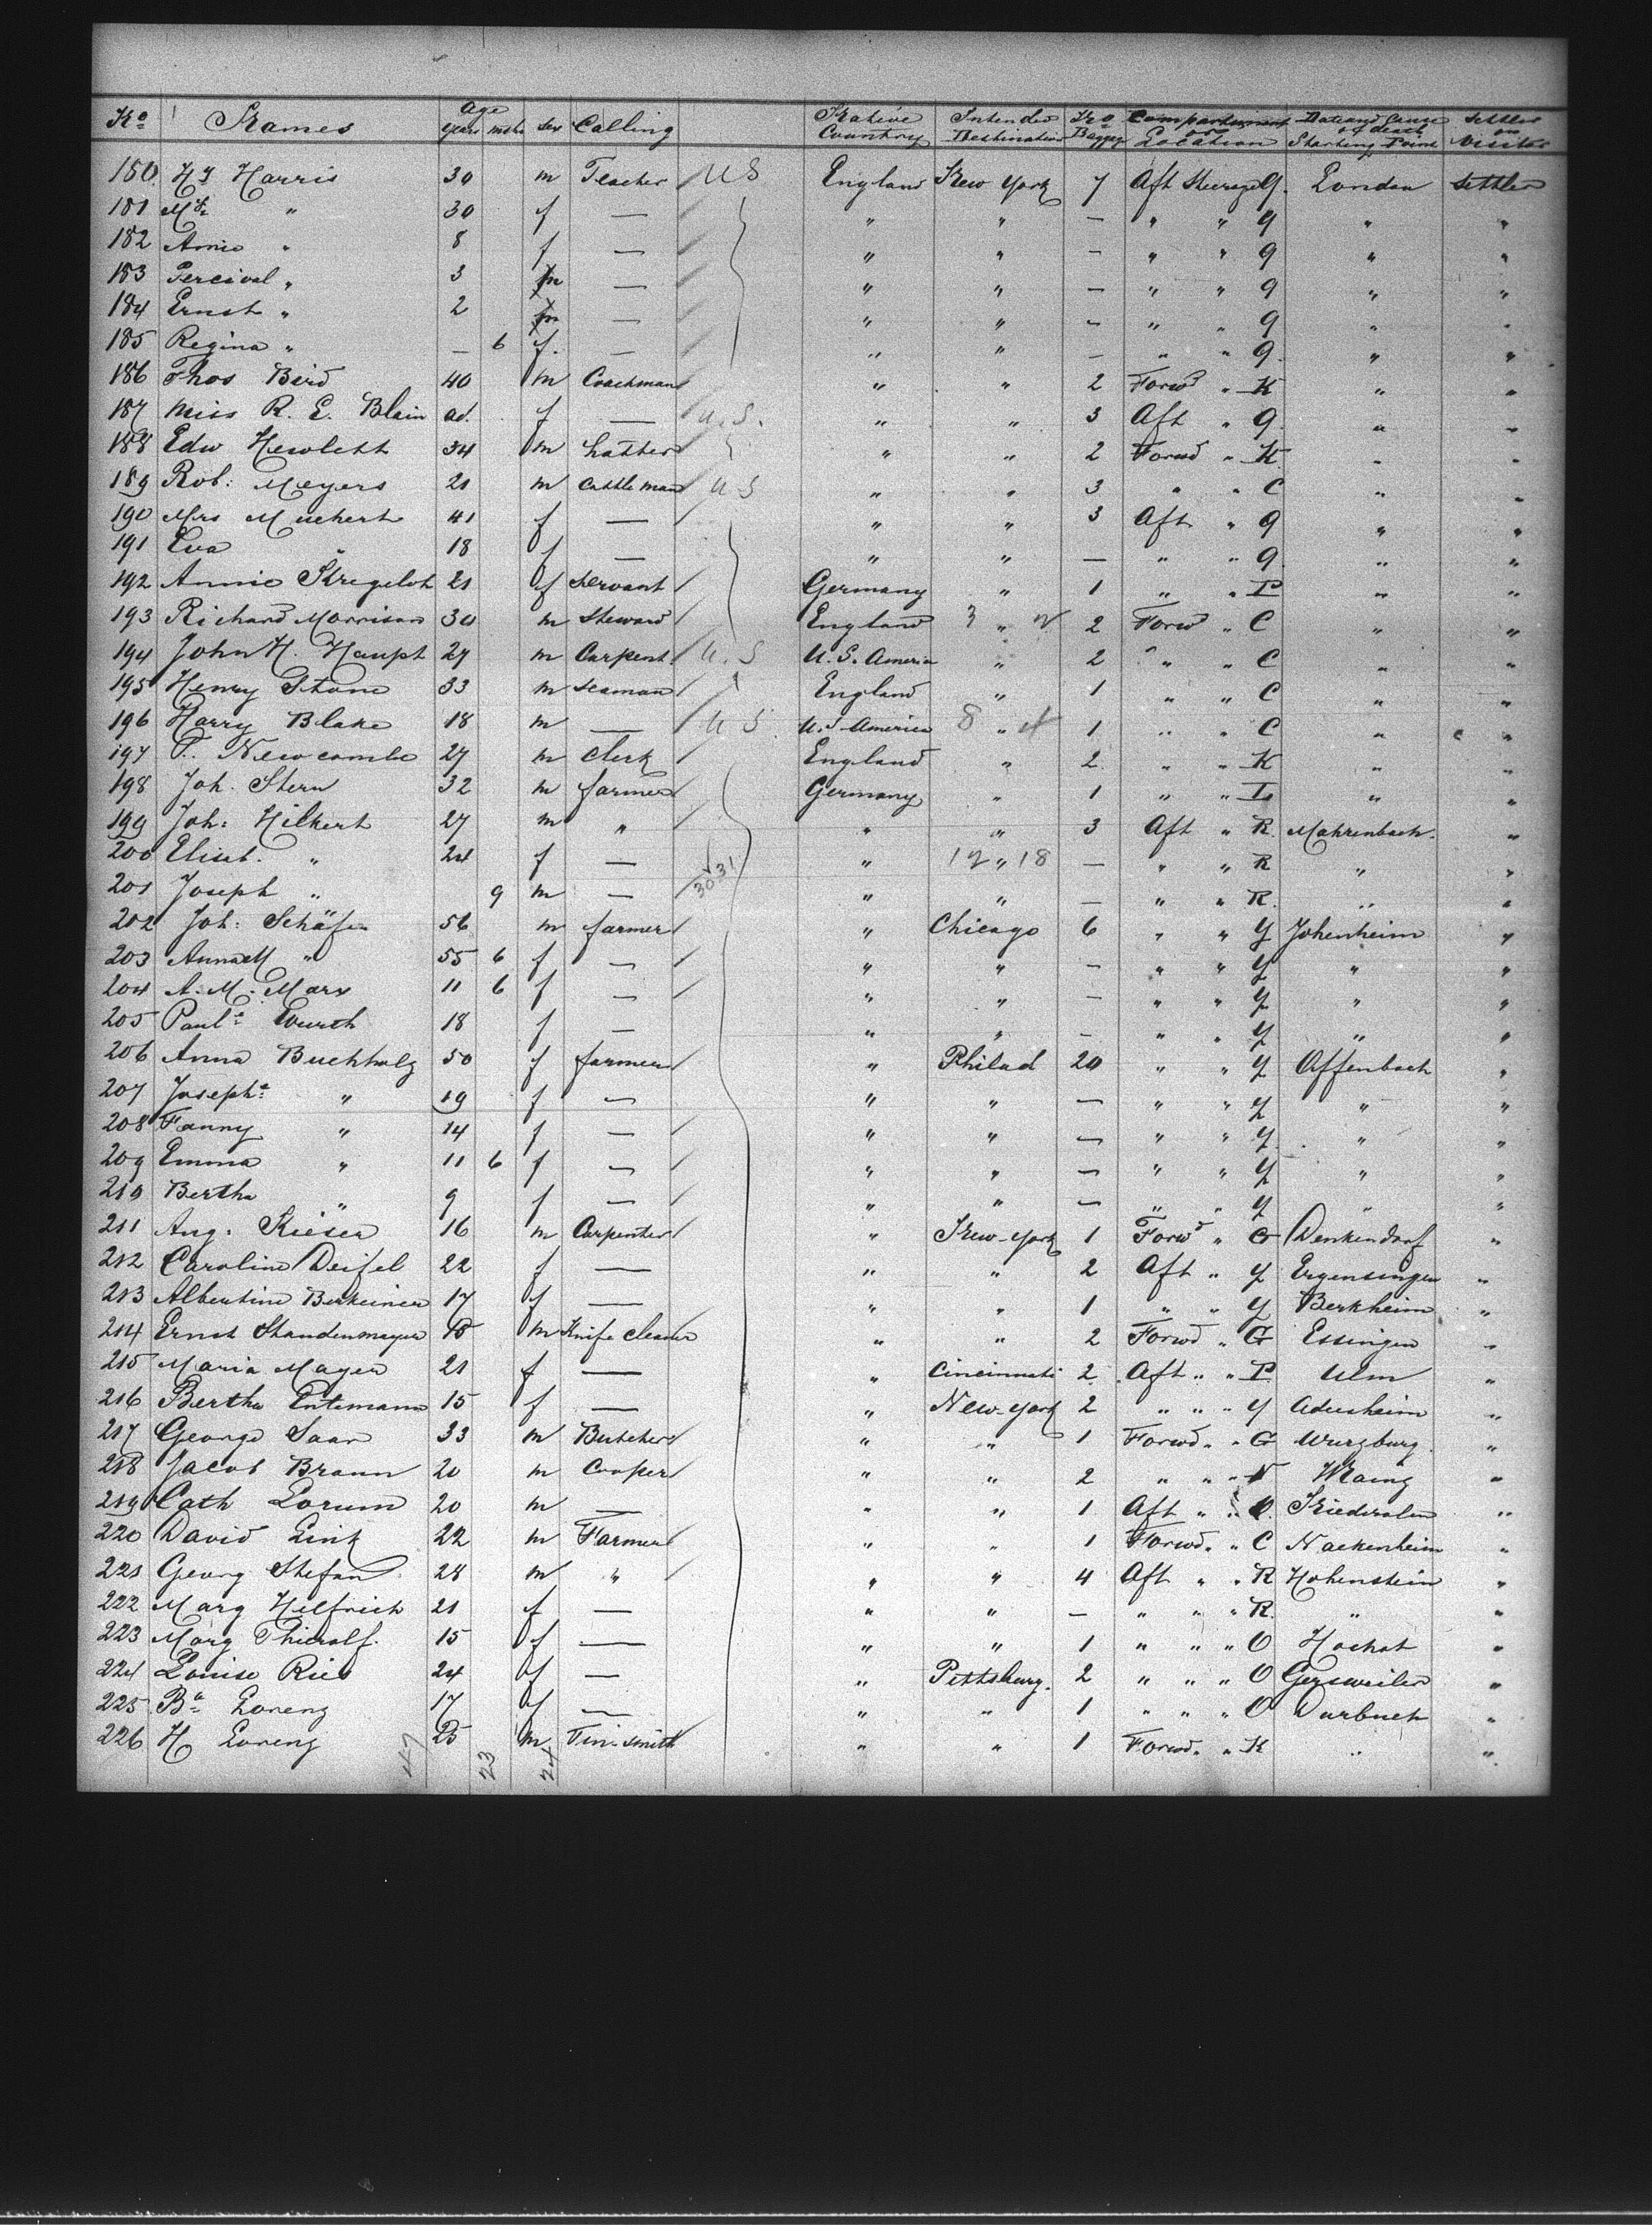 No. Names Age years mths Sex Calling Native Country Intended Destination No. Baggage Compartment or Location Date and Cause of death Starting Point Settler or Visitor
180 Hy Harris 30 m Teacher / U S England New York 7 Aft Steerage 9. London Settler
181 Mrs " 30 f — / " " — " " 9 " "
182 Annie " 8 f — / " " — " " 9 " "
183 Percival " 3 m — / " " — " " 9 " "
184 Ernst " 2 m — / " " — " " 9 " "
185 Regina " — 6 f. — / " " — " " 9. " "
186 Thos Bird 40 m Coachman " " 2 Forwd " K " "
187 Miss R. E. Blain ad. f — / U.S. " " 3 Aft " 9. " "
188 Edw Hewlett 34 m hatter / " " 2 Forwd " K " "
189 Rob: Meyers 21 m Cattle man U S " " 3 " " C " "
190 Mrs Muchert 41 f — / " " 3 Aft " 9 " "
191 Eva " 18 f — / " " — " " 9. " "
192 Annie 21 f Servant / Germany " 1 " " P " "
193 Richard Morrison 30 m Steward / England 3 " 2 Forwd " C " "
194 John H. Haupt 27 m Carpent. / U.S U.S. America " 2 " " C " "
195 Henry Stone 33 m Seaman / England " 1 " " C " "
196 Harry Blake 18 m — / U S. U.S. America 8 " 1 " " C " "
197 T. Newcombe 27 m Clerk / England " 2 " " K " "
198 Joh. Stern 32 m farmer / Germany " 1 " " L " "
199 Joh: Hilkert 27 m " / " " 3 Aft " R. Mahrenbach. "
200 Elisab. " 24 f — / " 12 " 18 — " " R " "
201 Joseph " 9 m — 30 31 " " — " " R. " "
202 Joh: Schäfer 56 m farmer / " Chicago 6 " " Y Johenheim "
203 Anna M " 55 6 f — / " " — " " Y " "
204 A. M. Marx 11 6 f — / " " — " " Y " "
205 Paula Wurth 18 f — " " — " " Y " "
206 Anna Buchholz 50 f farmer / " Philad 20 " " Y Offenbach "
207 Josepha " 19 f — / " " — " " Y " "
208 Fanny " 14 f — / " " — " " Y. " "
209 Emma " 11 6 f — / " " — " " Y " "
210 Bertha " 9 f — / " " — " " Y " "
211 Aug. Rieser 16 m Carpenter / " New-York 1 Forwd " G Denkendorf "
212 Caroline Deifel 22 f — " " 2 Aft " Y Ergensingen "
213 Albertine Berkeiner 17 f — " " 1 " " Y Berkheim "
214 Ernst Standenmayer 15 m Knife cleaner " " 2 Forwd " G Essingen "
215 Maria Mayer 21 f — " Cincinnati 2 Aft " " P Ulm "
216 Bertha Entemann 15 f — " New-York 2 " " " Y "
217 George Saar 33 m Butcher " " 1 Forwd " " G Wurzburg. "
218 Jacob Braun 20 m Cooper " " 2 " " " Mainz "
219 Cath Lorum 20 m — " " 1 Aft " " "
220 David Link 22 m Farmer / " " 1 Forwd. " C Nackenheim "
221 Georg Stefan 28 m " / " " 4 Aft " " R Hohenstein "
222 Marg Helfrich 21 f — " " — " " " R. " "
223 Marg Thierolf. 15 f — " " 1 " " " O Hochst "
224 Louise Ries 24 f — " Pittsburg. 2 " " " O Gersweiler "
225 Ba Lorenz 17 f — " " 1 " " " O Durbach "
226 H Lorenz 25 m Tin-smith " " 1 Forwd. " K " "
47 23 24